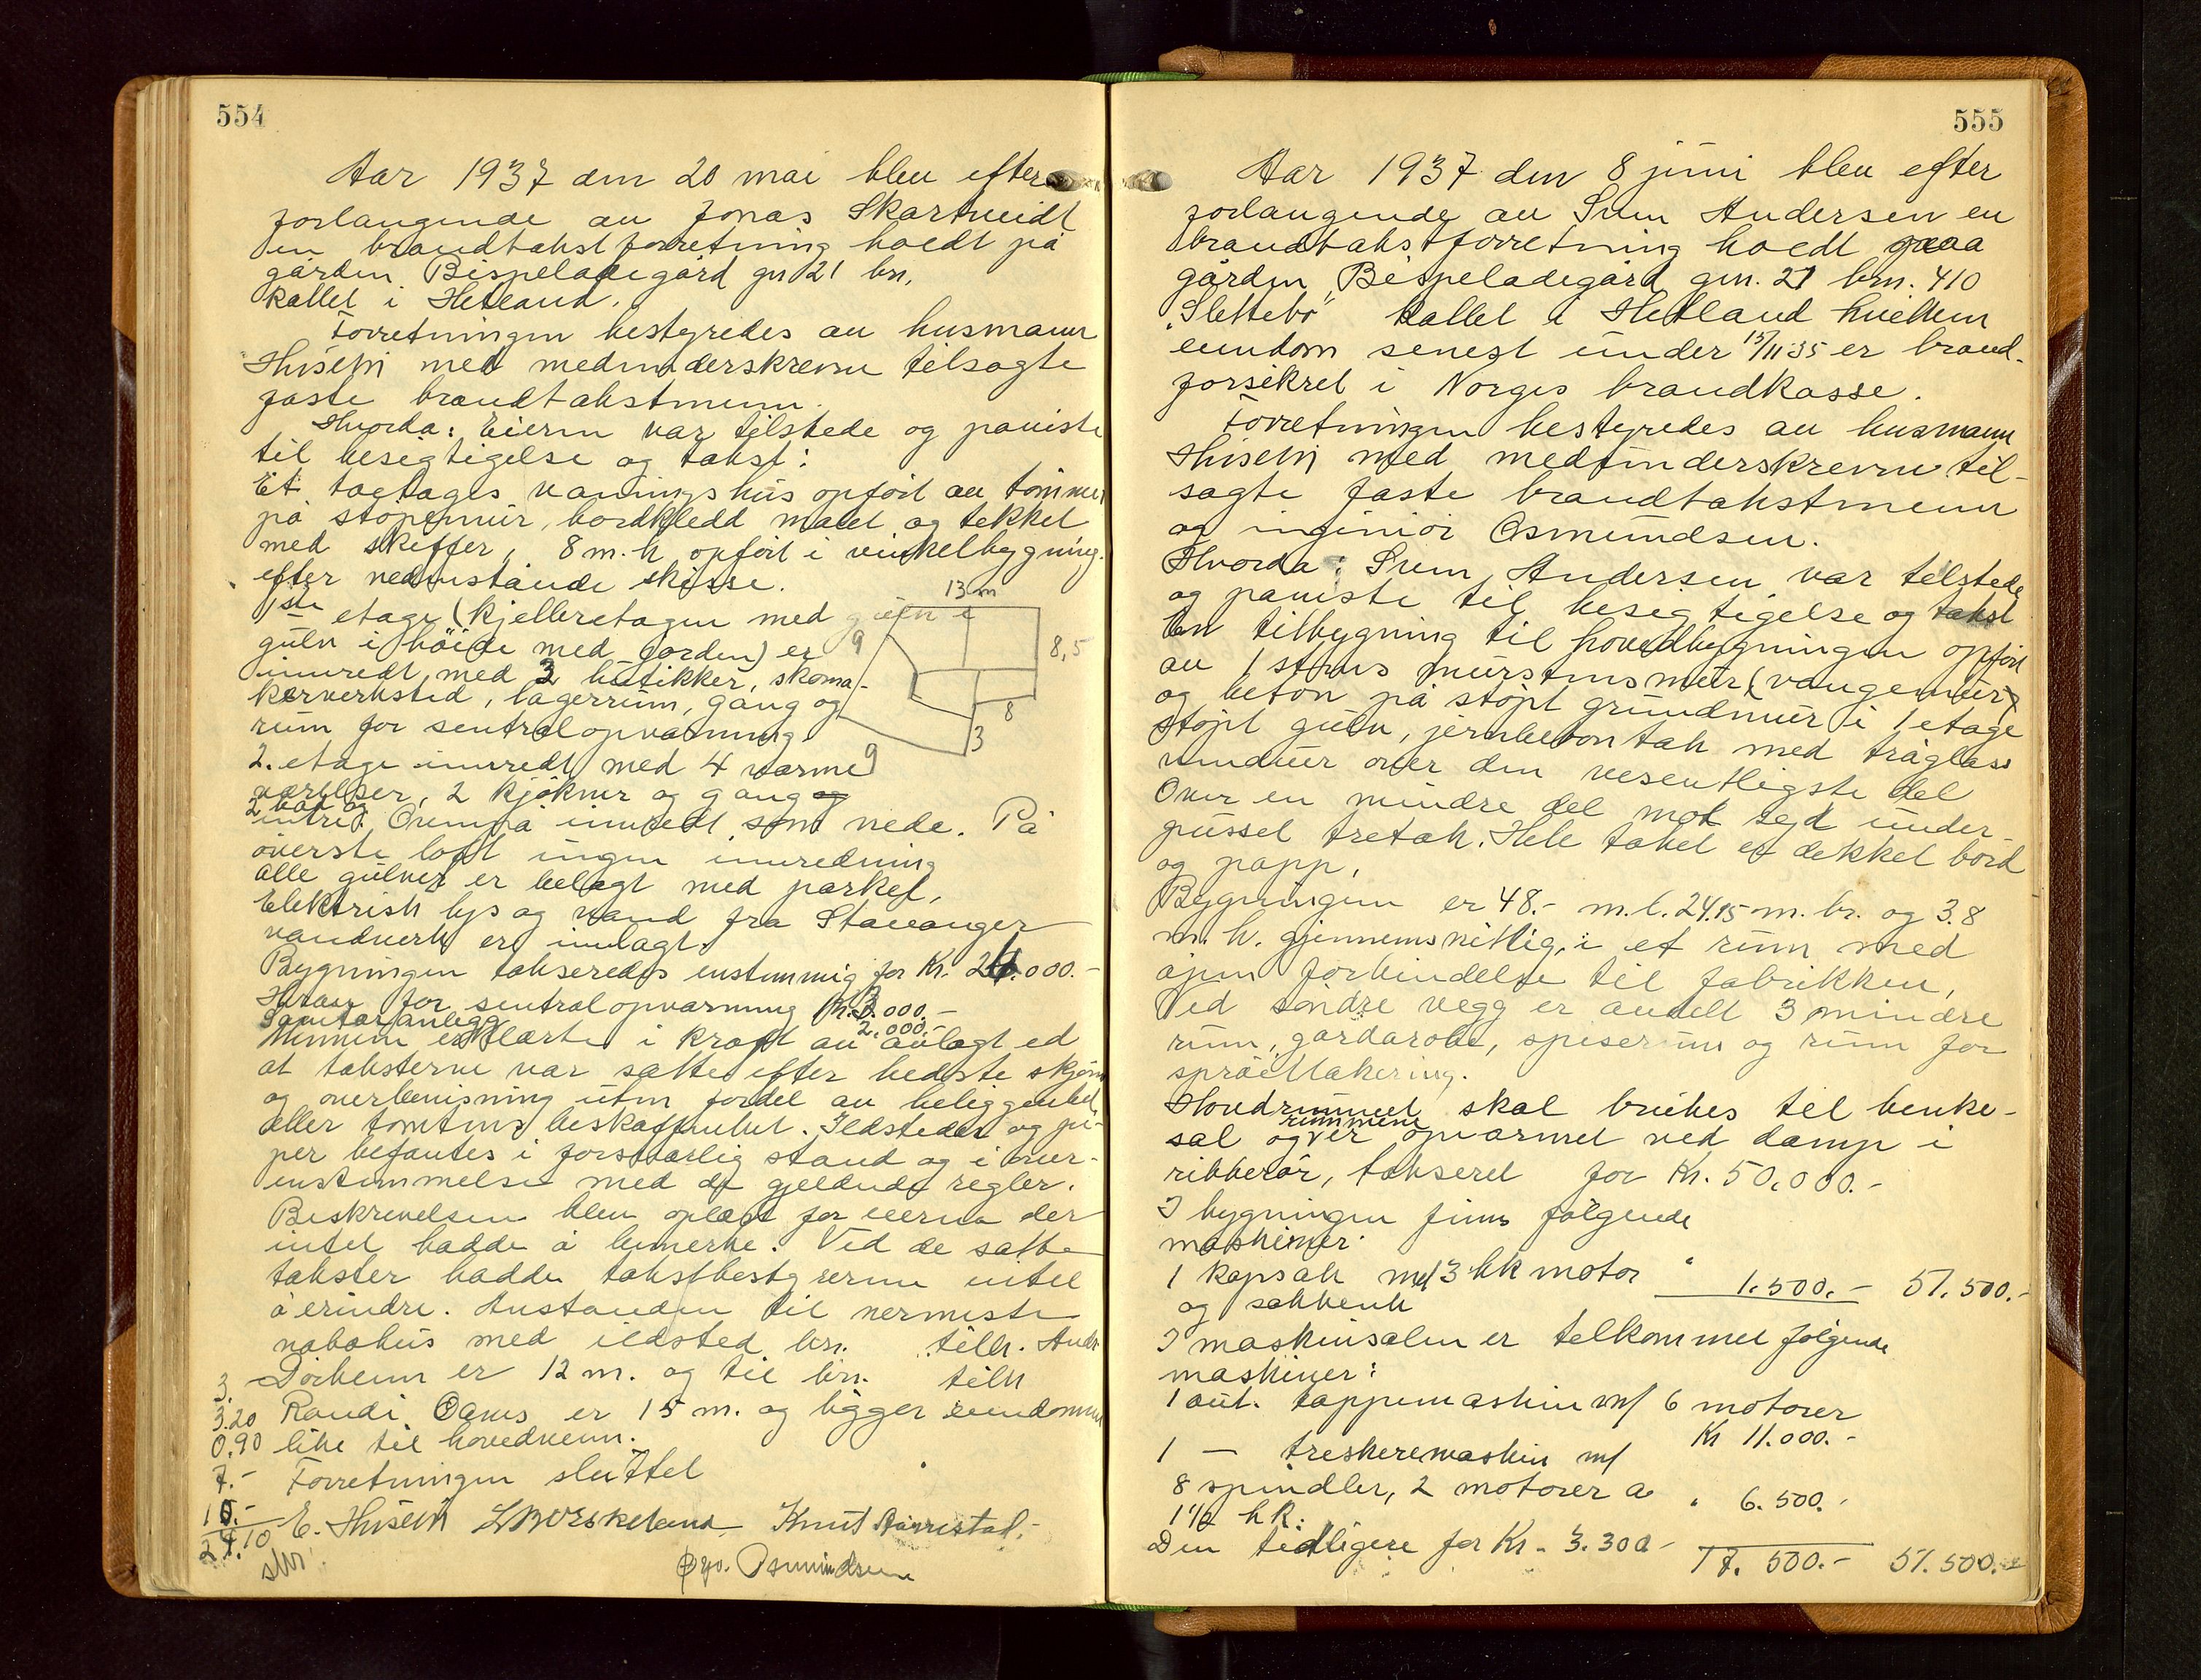 554
Aar 1937 den 20 mai blev efter
forlangende av Jonas Skartveidt
en brandtakstforretning holdt på
gården Bispeladegård gn 21 bn.
kallet i Hetland.
Forretningen bestyredes av husmann
Husebø med medunderskrevne tilsagte
faste brandtakstmenn.
Hvorda: Eieren var tilstede og paaviste
til besigtigelse og takst:
Et toetages vaaningshus opført av tømmer
på støpemur, bordkledd malet og tekket
med skiffer, 8 m. h. opført i vinkelbygning
efter nedenstående skisse.
1ste etage (kjelleretagen med gulv i
gulv i høide med jorden) er
innredt med 3 butikker, skoma-
kerverksted, lagerrum, gang og
rum for sentralopvarming.
13 m
9
8,5
8
3
9
2. etage innredt med 4 varme
værelser, 2 kjøkner og gang og
2 bad og
entre. Ovenpå innredt som nede. På
øverste loft ingen innredning
Alle gulver er belagt med parket,
Elektrisk lys og vand fra Stavanger
vandverk er innlagt.
Bygningen takseredes enstemmig for Kr. 26.000.-
for sentralopvarming Kr. 3.000.-
Sanitæranlegg 2.000.-
Mennene erklærte i kraft av avlagt ed
at taksterne var satte efter bedste skjønn
og overbevisning uten fordel av beliggenhet
eller tomtens beskaffenhet. Ildsteder og pi-
per befantes i forsvarlig stand og i over-
enstemmelse med de gjeldende regler.
Beskrivelsen blev oplæst for eierne der
intet hadde å bemerke. Ved de satte
takster hadde takstbestyrerne intet
å erindre. Avstanden til nermeste
nabohus med ildsted bn. tilh.
er 12 m. og til bn. tilh
Randi er 15 m. og ligger eiendommen
like til hovedveien.
Forretningen sluttet
3.
3.20
0.90
7.-
10.-
24.10
E. Husebø Knut
Osmundsen
555
Aar 1937 den 8 juni blev efter
forlangende av Sven Andersen en
brandtakstforretning holdt paa
gården Bispeladegård gn. 21 bn. 410
"Slettebø" kallet i Hetland hvilken
eiendom senest under 15/11 35 er brand-
forsikret i Norges brandkasse.
Forretningen bestyredes av husmann
Husebø med medunderskrevne til-
sagte faste brandtakstmenn
og ingeniør Osmundsen.
Hvorda: Sven Andersen var tilstede
og paaviste til besigtigelse og takst
En tilbygning til hovedbygningen opført
av 1 stens murstensmur (vangemur)
og beton på støpt grundmur i 1 etage
støpt gulv, jernbeton tak med tråglass
vinduer over den vesentligste del
Over en mindre del mot syd under-
pusset tretak. Hele taket er dekket bord
og papp,
Bygningen er 48.- m. l. 24.15 m. br. og 3.8
m. h. gjennemsnitlig, i et rum med
åpen forbindelse til fabrikken,
Ved søndre vegg er avdelt 3 mindre
rum, gardarobe, spiserum og rum for
sprøitlakering.
Hovedrummet skal brukes til benke-
rummene
sal og er opvarmet ved damp i
ribberør, taksert for Kr. 50.000.-
I bygningen finns følgende
maskiner.
1 kapsak m/ 3 hk motor " 1.500.- 51.500.-
og sakbenk
I maskinsalen er tilkommet følgende
maskiner:
1 aut. tappemaskin m/ 6 motorer
Kr 11.000.-
1 — treskeremaskin m/
8 spindler, 2 motorer a " 6.500.-
1 1/2 hk.
Den tidligere for Kr. 3.300 -
17.500.- 51.500.-